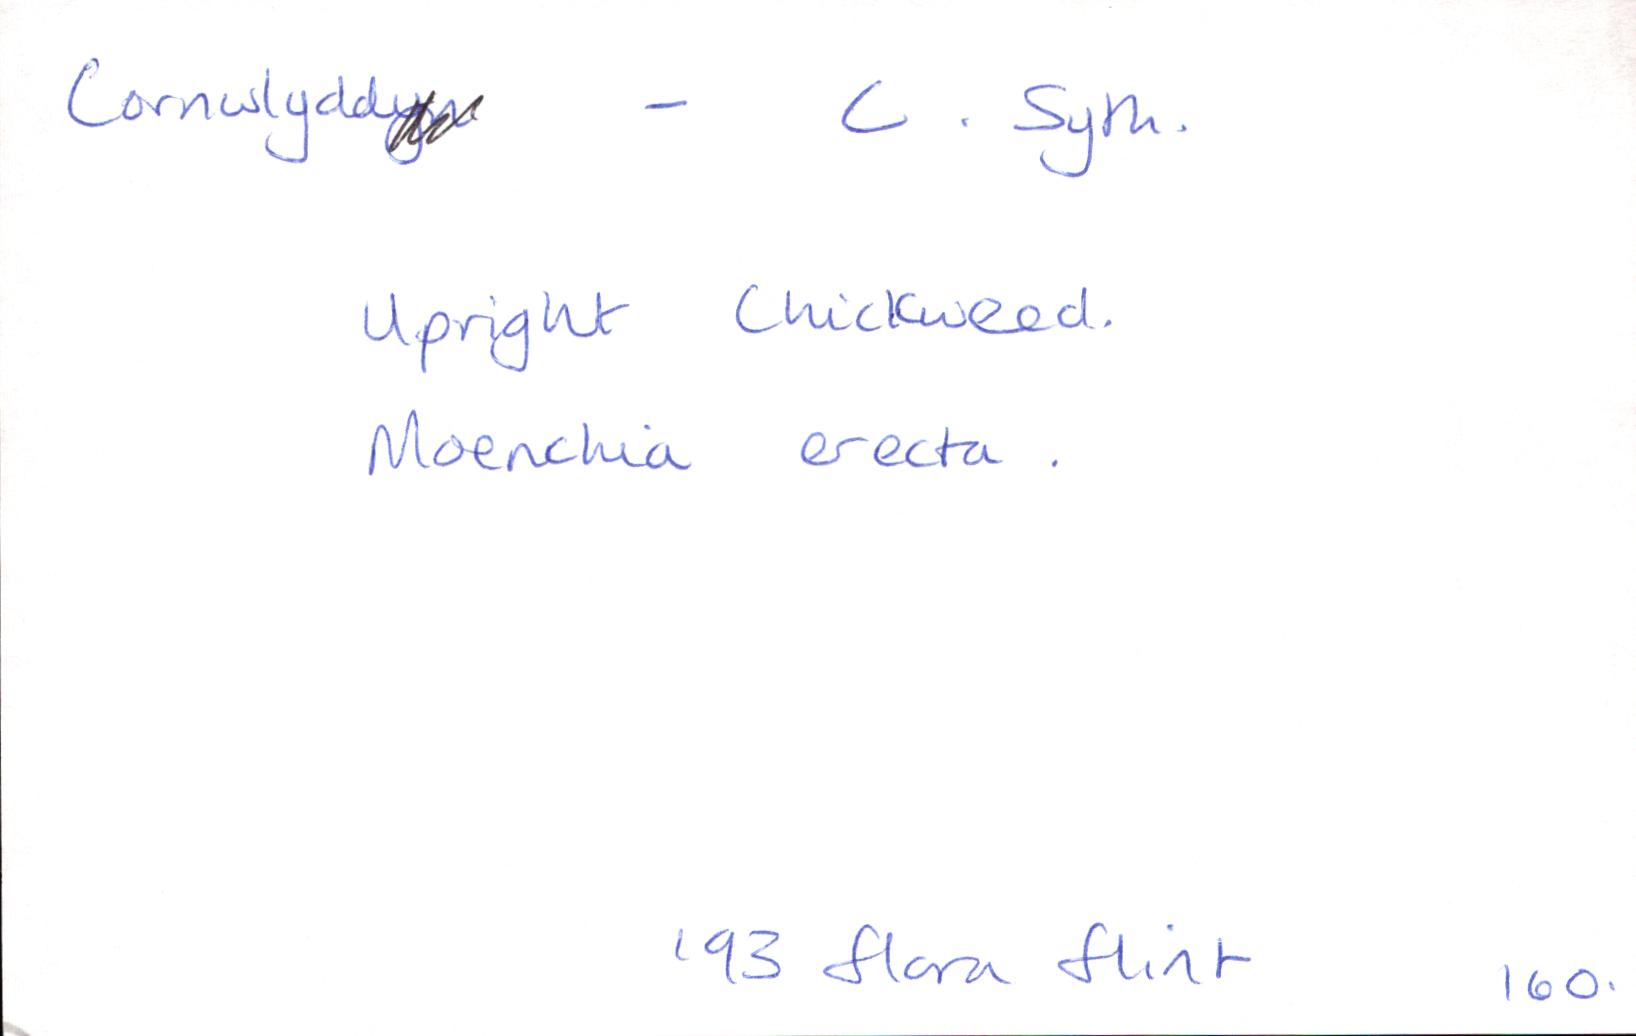 Cornwlydd - C. Syth.
Upright Chickweed.
Moenchia erecta.
'93 flora flint
160.